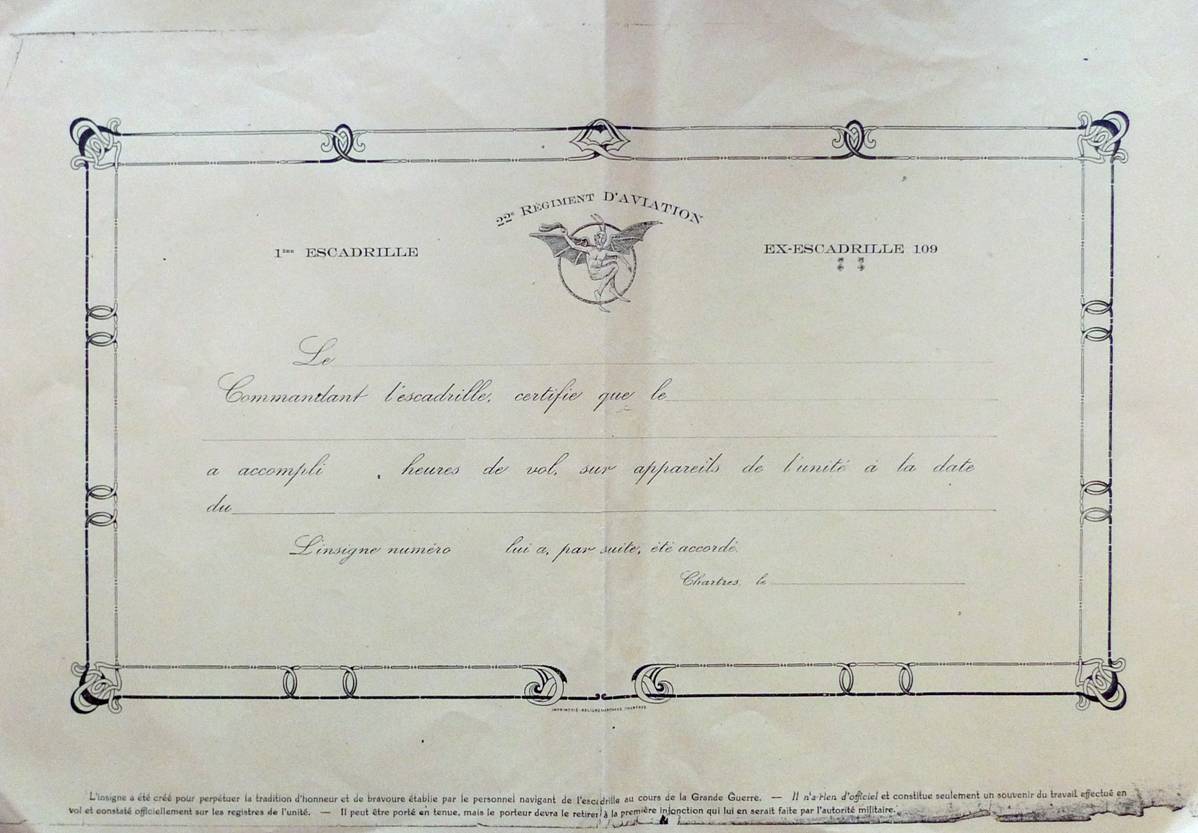 22e RÉGIMENT D'AVIATION
1ère ESCADRILLE
EX-ESCADRILLE 109
Le
Commandant l'escadrille, certifie que le
a accompli , heures de vol, sur appareils de l'unité à la date
du
L'insigne numéro lui a, par suite, été accordé.
Chartres, le
IMPRIMERIE-RELIURE CHARTRES
L'insigne a été créé pour perpétuer la tradition d'honneur et de bravoure établie par le personnel navigant de l'escadrille au cours de la Grande Guerre. — Il n'a rien d'officiel et constitue seulement un souvenir du travail effectué en
vol et constaté officiellement sur les registres de l'unité. — Il peut être porté en tenue, mais le porteur devra le retirer à la première injonction qui lui en serait faite par l'autorité militaire.